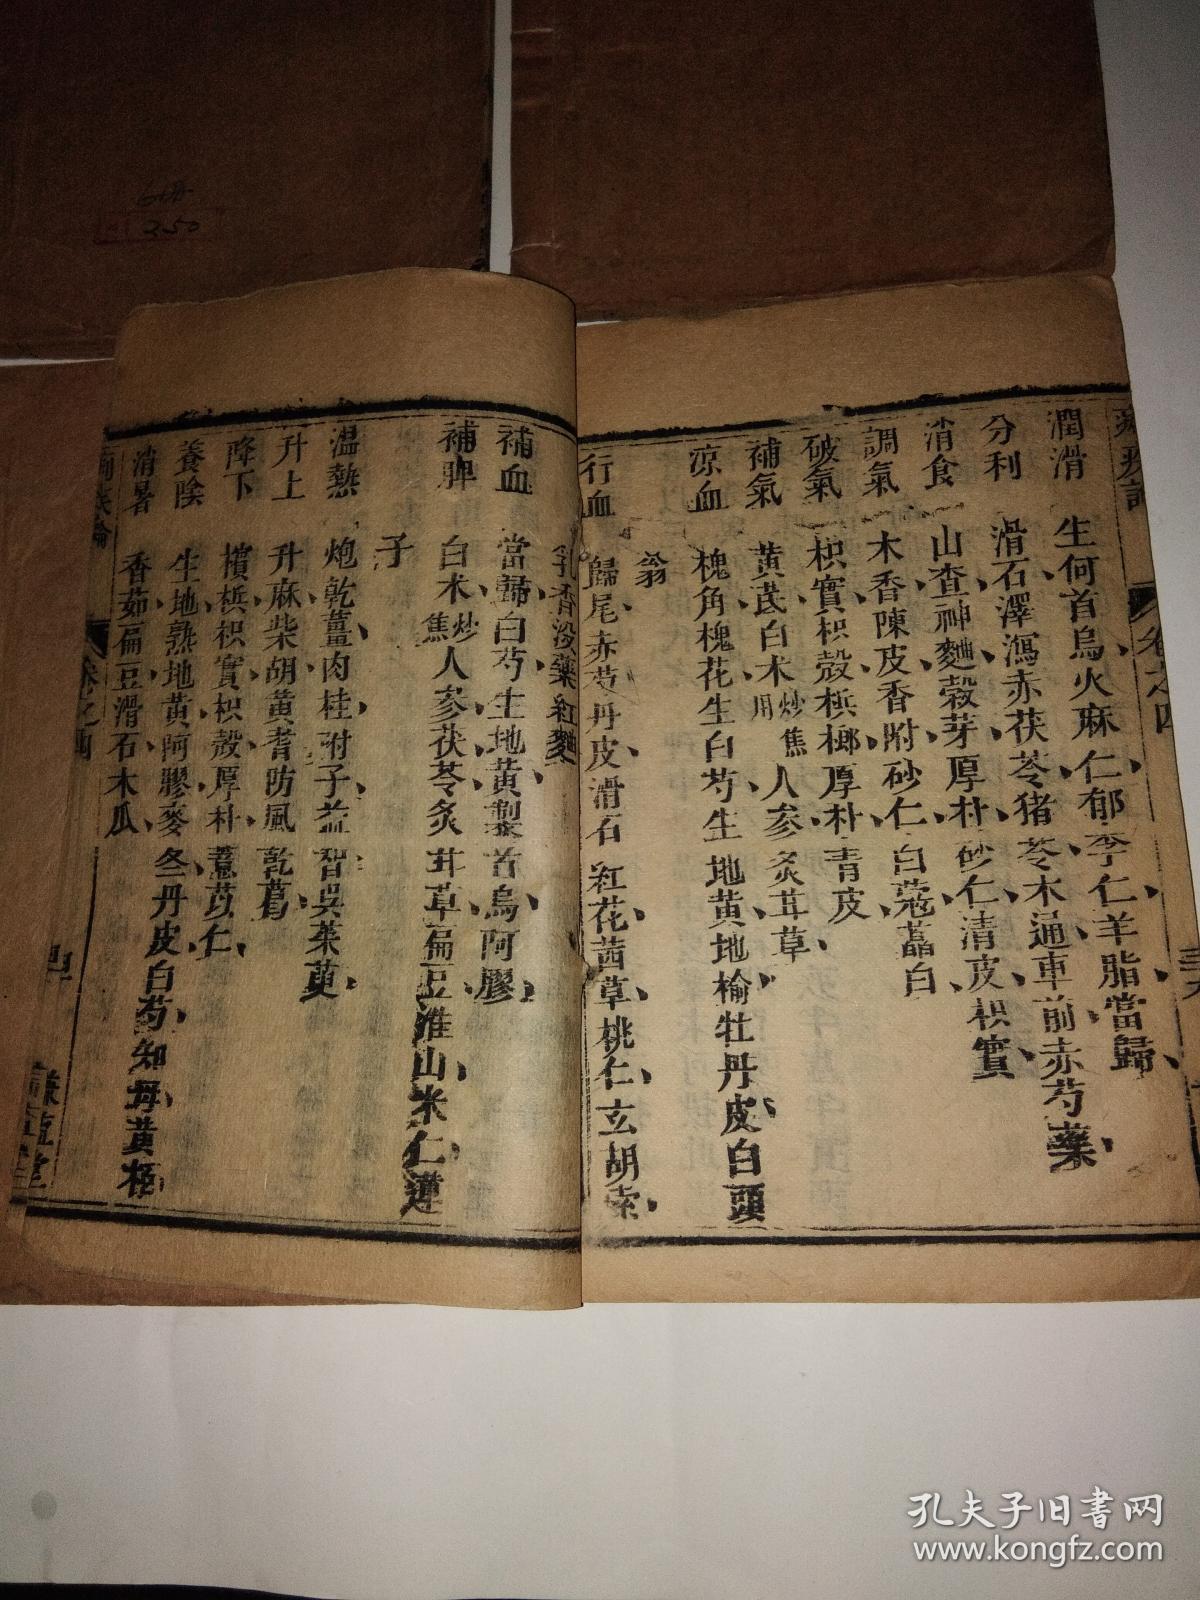 潤滑 生何首烏火麻仁郁李仁羊脂當歸
分利 滑石澤瀉赤茯苓猪苓木通車前赤芍藥
消食 山查神麯穀芽厚朴砂仁清皮枳實
調氣 木香陳皮香附砂仁白蔻藠白
破氣 枳實枳殼梹榔厚朴青皮
補氣 黃芪白朮炒焦用人参炙甘草
涼血 槐角槐花生白芍生地黃地榆牡丹皮白頭
翁
行血 歸尾赤芍丹皮滑石紅花茜草桃仁玄胡索
乳香沒藥紅麯
補血 當歸白芍生地黃製首烏阿膠
補脾 白朮炒焦人参茯苓炙甘草扁豆淮山米仁蓮
子
温熱 炮乾薑肉桂附子益智吳茱萸
升上 升麻柴胡黃耆防風乾葛
降下 檳梹枳實枳殼厚朴薏苡仁
養陰 生地熟地黃阿膠麥冬丹皮白芍知母黃柏
消暑 香茹扁豆滑石木瓜
卷之四
卷之四
三九
250
孔夫子旧书网
www.kongfz.com